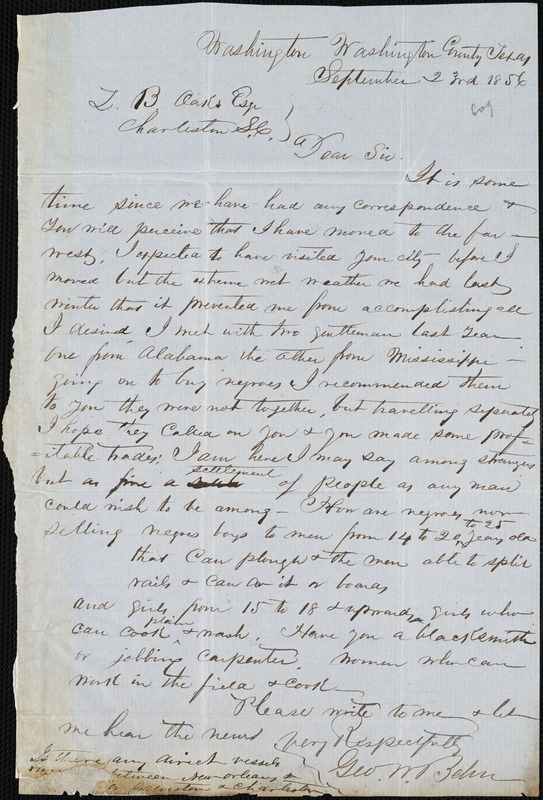 Washington Washington County Texas
September 23rd 1856
Z. B. Oakes Esqr
Charleston S.C.
Dear Sir.
It is some
time since we have had any correspondence &
You will perceive that I have moved to the far
west, I expected to have visited your city before I
moved but the extreme wet weather we had last
winter that it prevented me from accomplishing all
I desired, I met with two gentleman last year
one from Alabama the other from Mississippi
going on to buy negroes I recommended them
to you they were not together, but travelling seperately
I hope they called on you & you made some prof-
=itable trades; I am here I may say among strangers
but as fine a settlement of people as any man
could wish to be among - How are negroes now
selling negroe boys to men from 14 to 20 to 25 years old
that can plough & the men able to split
rails & can do it or boards
and girls from 15 to 18 & upwards, girls who
can cook plain & wash. Have you a blacksmith
or jobbing carpenter. Women who can
work in the field & cook
Please write to me & let
me hear the news
Very Respectfully
Geo. W. Behn
Is there any direct vessels
between New Orleans &
or Galveston & Charleston